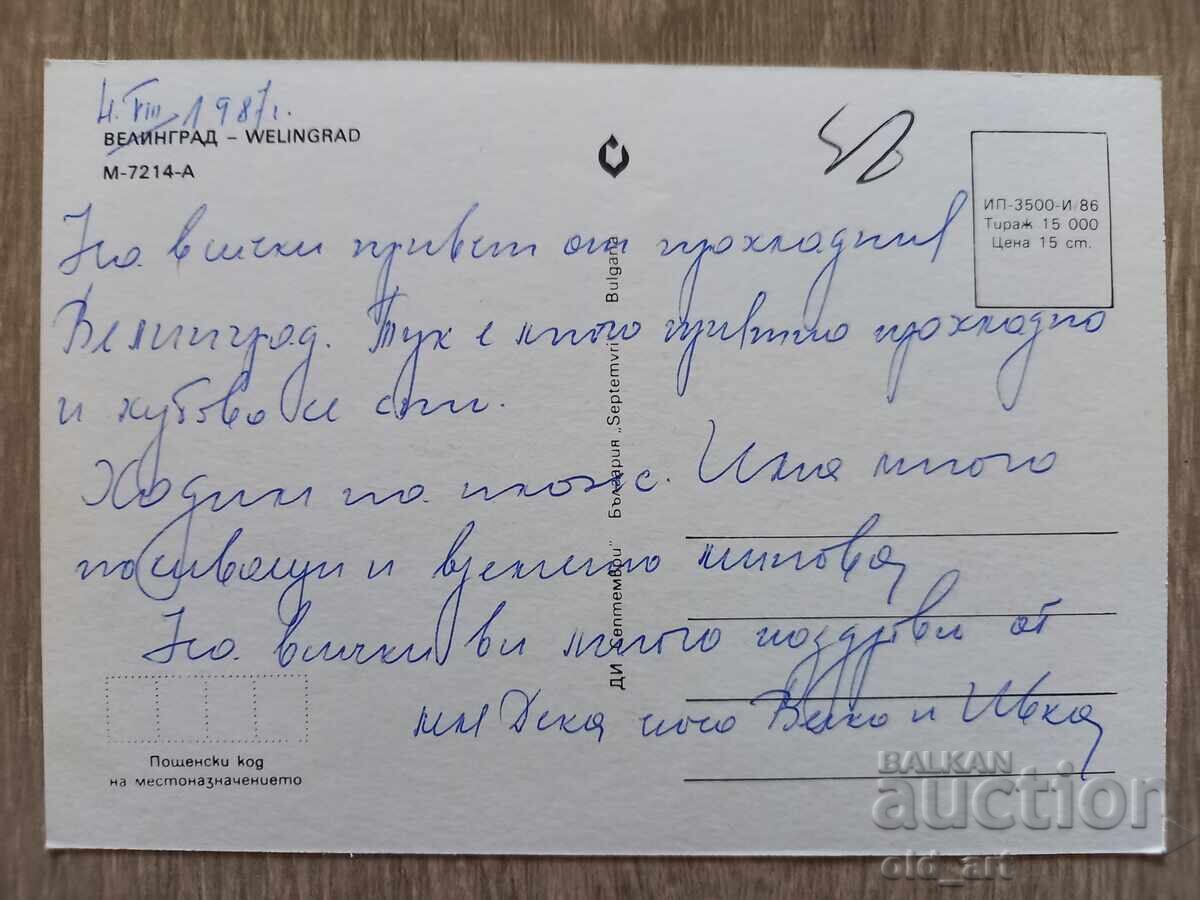 4. VIII 1987 г.
ВЕЛИНГРАД – WELINGRAD
М-7214-А
ИП-3500-И 86
Тираж 15 000
Цена 15 ст.
На всички привет от прохладния
Велинград. Тук е много приятно прохладно
и хубаво се спи.
Ходим на плаж с. Има много
почиващи и времето минава
На всички ви много поздрави от
мен Дека чичо Велко и Ивка
ДИ „Септември" България „Septemvri" Bulgaria
Пощенски код
на местоназначението
BALKAN
auction
old_art